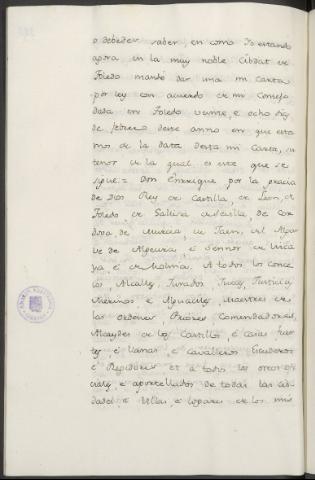 o debedes saber, en como Yo estando
agora en la muy noble Cibdat de
Toledo mandé dar una mi Carta
por ley con acuerdo de mi Consejo
dada en Toledo veinte, e ocho dias
de febrero deste anno en que esta
mos de la data desta mi Carta, su
tenor de la qual es este que se
sigue = Don Enrrique por la gracia
de Dios Rey de Castilla, de Leon, de
Toledo de Gallisia de Sevilla, de Cor
dova, de Murcia, de Jaen, del Algar
ve de Algesira, e Sennor de Visca
ya e de Molina. A todos los conce
ios, Alcalles, Jurados, Jueces, Justicias,
Merinos, e Alguaciles, maestres de
las ordenes, Priores, Comendadores,
Alcaydes de los Castillos, e casas fuer
tes, e llanas, e cavalleros Escuderos
e Regidores et a todos los otros ofi
ciales, e aportellados de todas las cib
dades, e villas, e logares de los mis